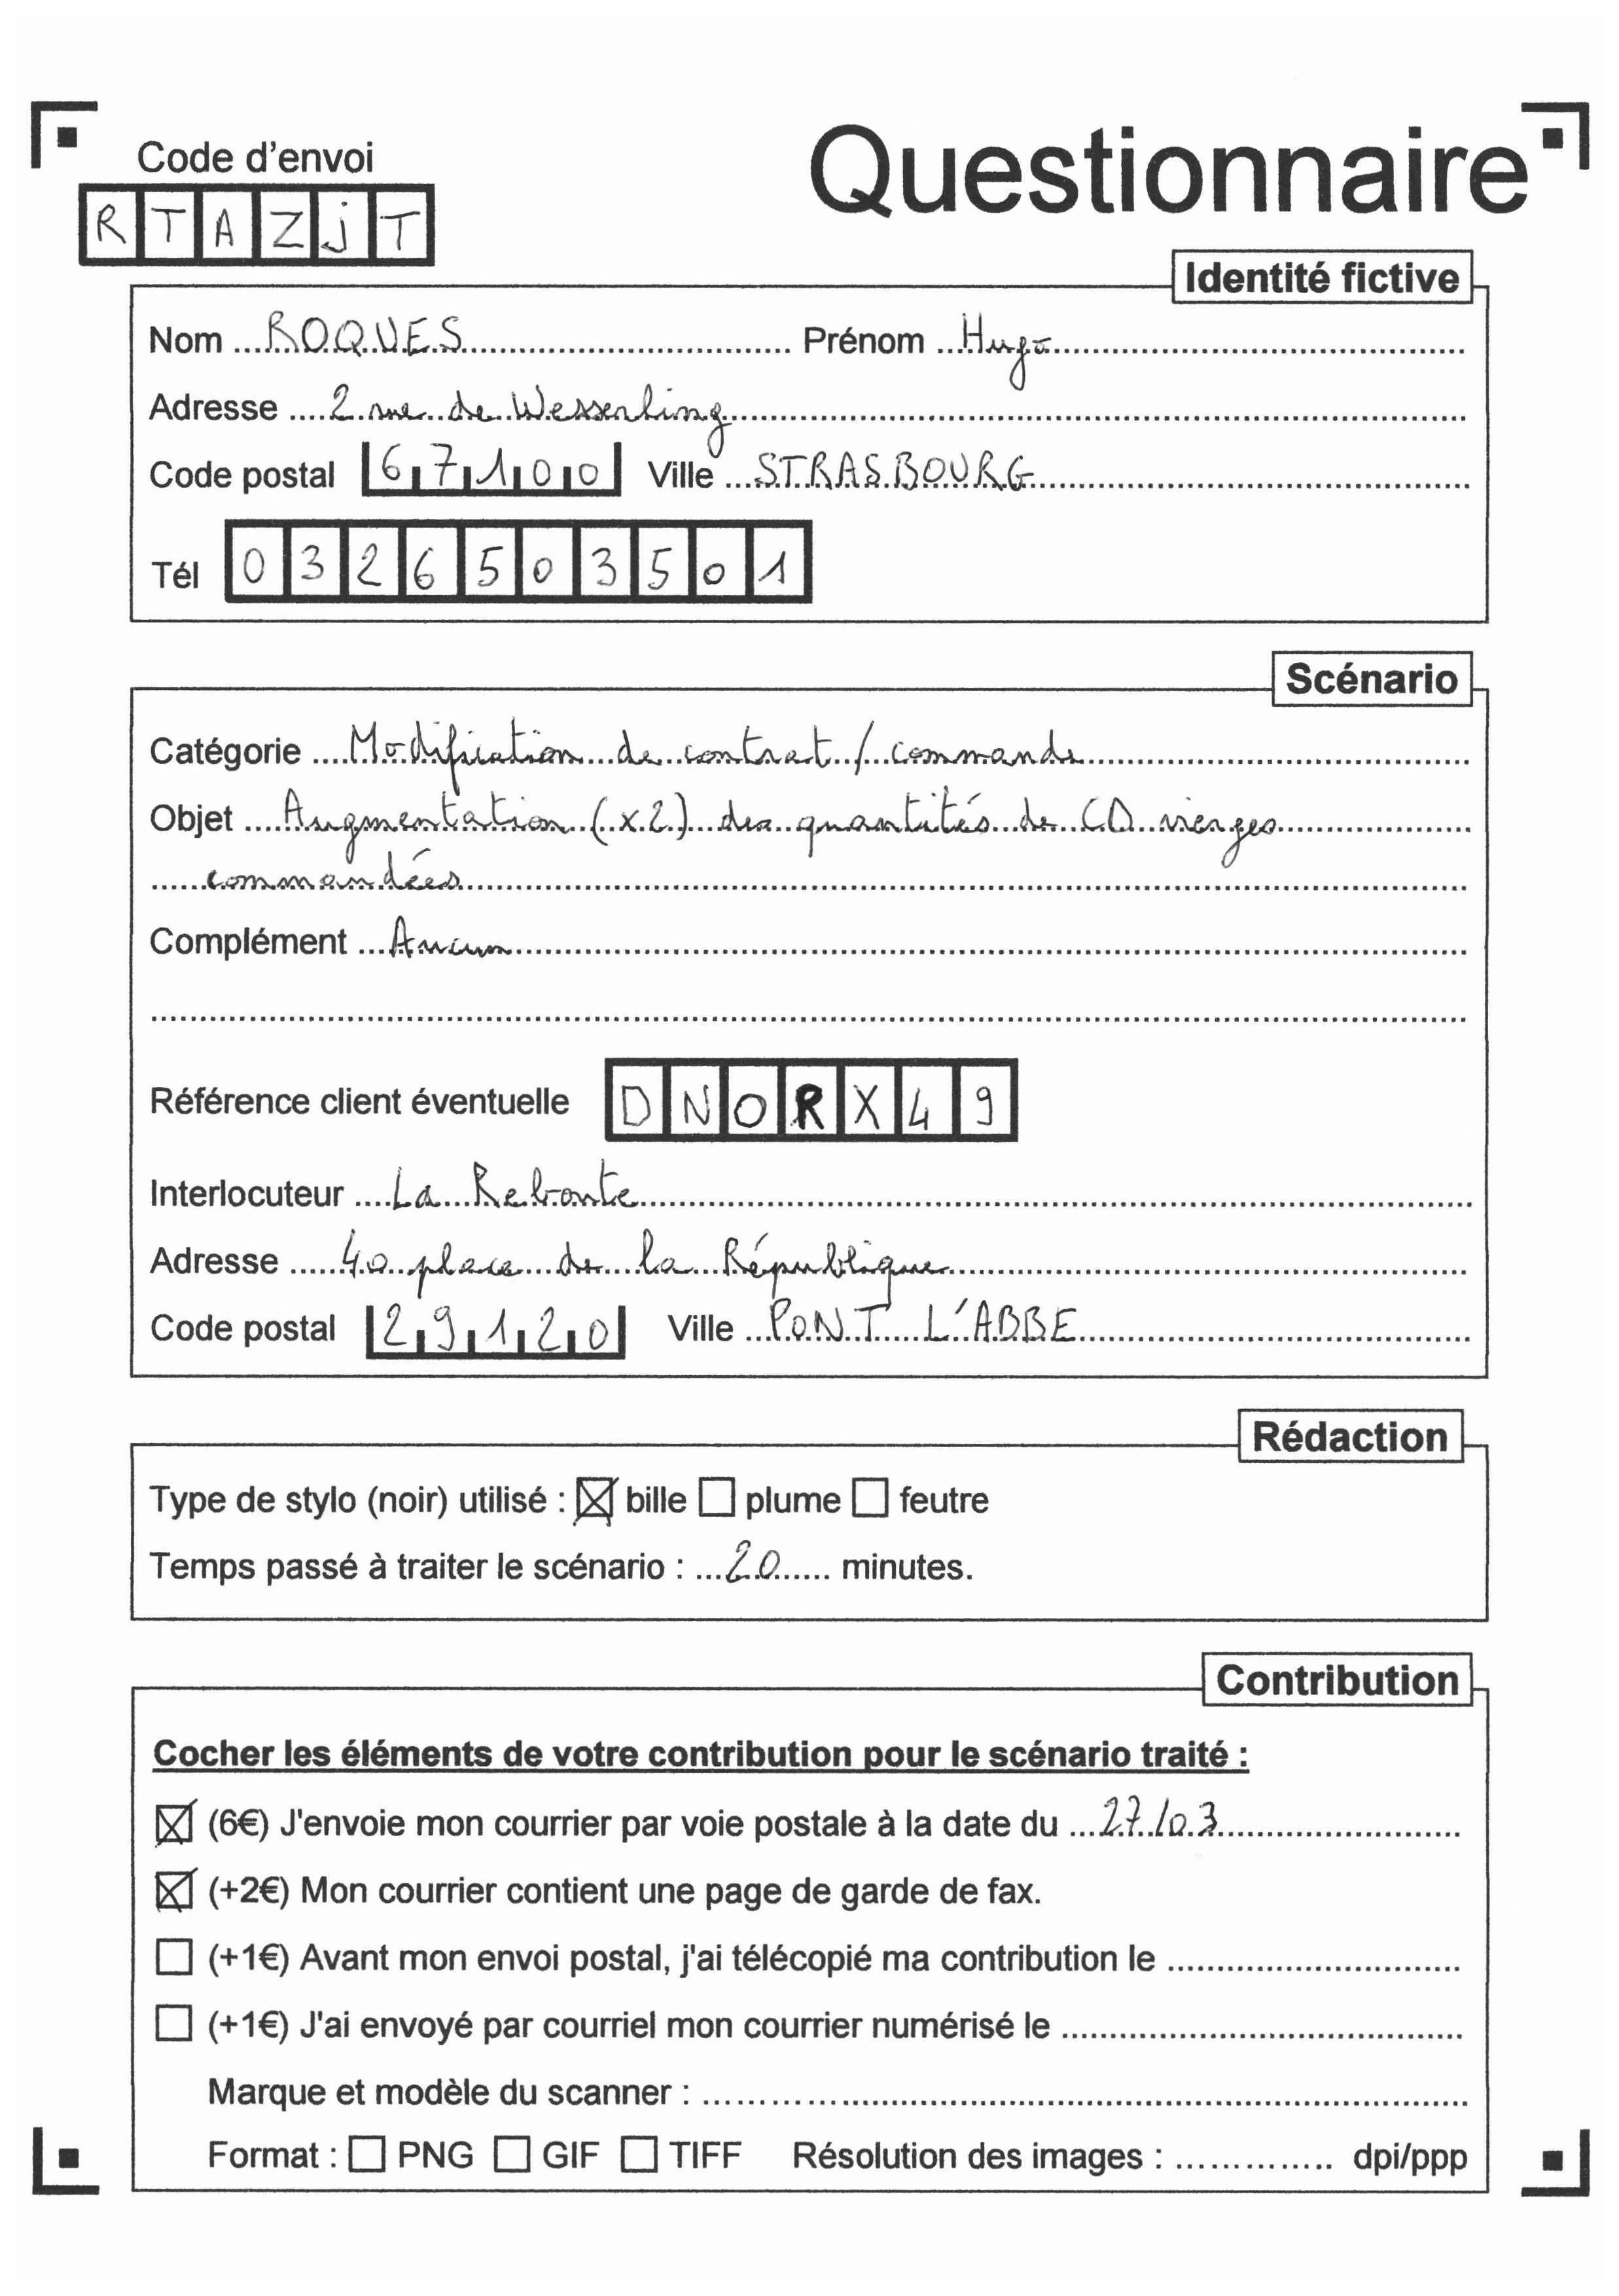 Code d'envoi
Questionnaire
RTAZjT
Identité fictive
Nom ROQUES Prénom Hugo
Adresse 2 rue de Wesserling
Code postal 67100 Ville STRASBOURG
Tél 0326503501
Scénario
Catégorie Modification de contrat / commande
Objet Augmentation (x2) des quantités de CD vierges
commandées
Complément Aucun
Référence client éventuelle DNORX49
Interlocuteur La Reboute
Adresse 40 place de la République
Code postal 29120 Ville PONT L'ABBE
Rédaction
Type de stylo (noir) utilisé : ☒ bille ☐ plume ☐ feutre
Temps passé à traiter le scénario : 20 minutes.
Contribution
Cocher les éléments de votre contribution pour le scénario traité :
☒ (6€) J'envoie mon courrier par voie postale à la date du 27/03
☒ (+2€) Mon courrier contient une page de garde de fax.
☐ (+1€) Avant mon envoi postal, j'ai télécopié ma contribution le
☐ (+1€) J'ai envoyé par courriel mon courrier numérisé le
Marque et modèle du scanner :
Format : ☐ PNG ☐ GIF ☐ TIFF Résolution des images : dpi/ppp